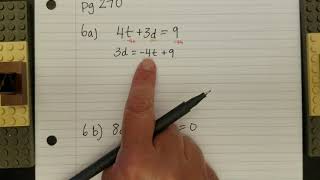 pg 270
6a) 4t + 3d = 9
-4t -4t
3d = -4t + 9
6b) 8 = 0